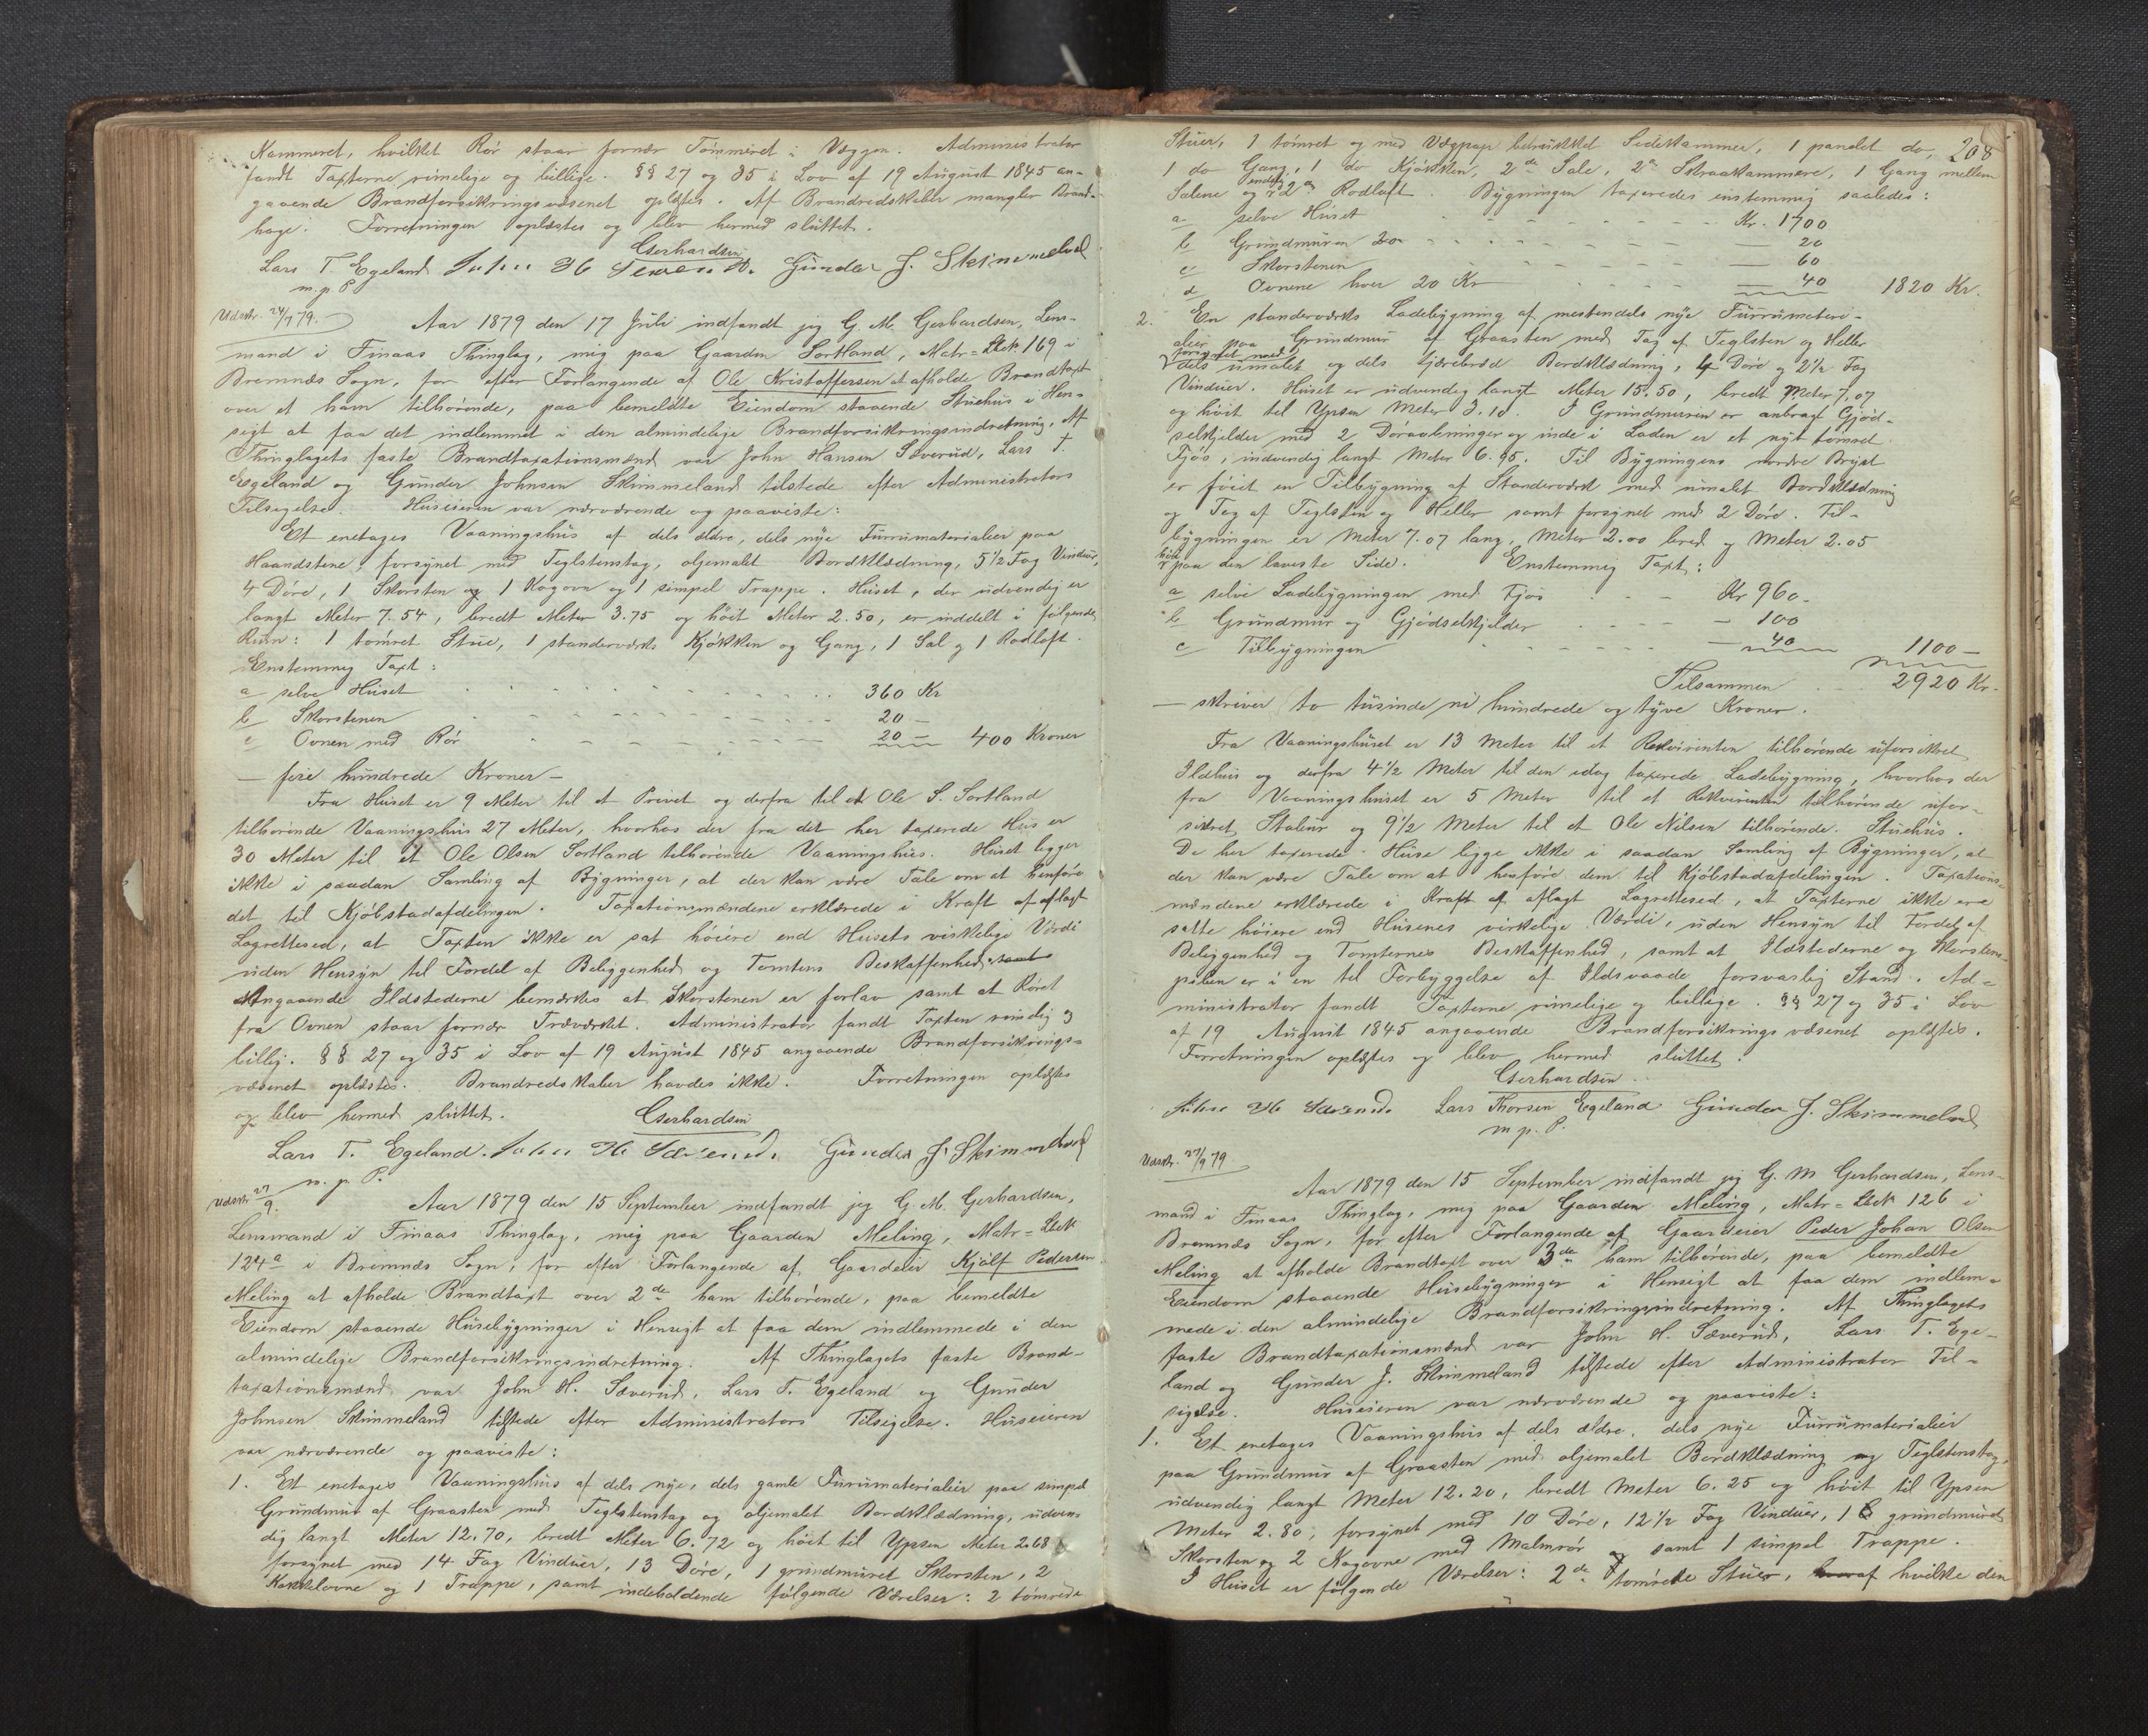 Kammeret, hvilket Rör staar fornær Tömmeret i Væggen. Administrator
fandt Taxterne rimelige og billige. §§ 27 og 35 i Lov af 19 August 1845 an-
gaaende Brandforsikringsvæsenet oplæstes. Af Brandredskaber mangler Brand-
hage. Forretningen oplæstes og blev hermed sluttet.
Gerhardsen
Lars T. Egeland John H Sæverud. Gunder J. Skimmeland
m. p. P.
Udskr. 24/7 79.
Aar 1879 den 17 Juli indfandt jeg G. M. Gerhardsen, Lens-
mand i Finaas Thinglag, mig paa Gaarden Sortland, Matr=Lbk 169 i
Bremnæs Sogn, for efter Forlangende af Ole Kristoffersen at afholde Brandtaxt
over et ham tilhörende, paa bemeldte Eiendom staaende Stuehus i Hen-
sigt at faa det indlemmet i den almindelige Brandforsikringsindretning. Af
Thinglagets faste Brandtaxationsmænd var John Hansen Sæverud, Lars T.
Egeland og Gunder Johnsen Skimmeland tilstede efter Administrators
Tilsigelse. Huseieren var nærværende og paaviste:
Et enetages Vaaningshus af dels ældre, dels nye Furrumaterialier paa
Haandstene, forsynet med Teglstenstag, oljemalet Bordklædning, 5½ Fag Vinduer,
4 Döre, 1 Skorsten og 1 Kogovn og 1 simpel Trappe. Huset, der udvendig er
langt Meter 7.54, bredt Meter 3.75 og höit Meter 2.50, er inddelt i følgende
Rum: 1 tömret Stue, 1 standerværks Kjökken og Gang, 1 Sal og 1 Rodloft.
Enstemmig Taxt:
a selve Huset 360 Kr
b Skorstenen 20 —
c Ovnen med Rör 20 — 400 Kroner
— fire hundrede Kroner —
Fra Huset er 9 Meter til et Privet og derfra til et Ole S. Sortland
tilhörende Vaaningshus 27 Meter, hvorhos der fra det her taxerede Hus er
30 Meter til et Ole Olsen Sortland tilhörende Vaaningshus. Huset ligger
ikke i saadan Samling af Bygninger, at der kan være Tale om at henföre
det til Kjöbstadafdelingen. Taxationsmændene erklærede i Kraft af aflagt
Lagrettesed, at Taxten ikke er sat höiere end Husets virkelige Værdi
uden Hensyn til Fordel af Beliggenhed og Tomtens Beskaffenhed samt
Angaaende Ildstederne bemærkes at Skorstenen er forlav samt at Röret
fra Ovnen staar fornær Træværket. Administrator fandt Taxten rimelig og
billig. §§ 27 og 35 i Lov af 19 August 1845 angaaende Brandforsikrings-
væsenet oplæstes. Brandredskaber havdes ikke. Forretningen oplæstes
og blev hermed sluttet.
Gerhardsen
Lars T. Egeland. John H Sæverud. Gunder J. Skimmeland
m. p. P.
Udskr 27/9.
Aar 1879 den 15 September indfandt jeg G. M. Gerhardsen,
Lensmand i Finaas Thinglag, mig paa Gaarden Meling, Matr=Lbk
124a i Bremnæs Sogn, for efter Forlangende af Gaardeier Kjølf Pedersen
Meling at afholde Brandtaxt over 2de ham tilhörende, paa bemeldte
Eiendom staaende Husebygninger i Hensigt at faa dem indlemmede i den
almindelige Brandforsikringsindretning. Af Thinglagets faste Brand-
taxationsmænd var John H. Sæverud, Lars T. Egeland og Gunder
Johnsen Skimmeland tilstede efter Administrators Tilsigelse. Huseieren
var nærværende og paaviste:
1. Et enetages Vaaningshus af dels nye, dels gamle Furumaterialier paa simpel
Grundmur af Graasten med Teglstenstag og oljemalet Bordklædning, udven-
dig langt Meter 12.70, bredt Meter 6.72 og höit til Ypsen Meter 2.68
forsynet med 14 Fag Vinduer, 13 Döre, 1 grundmuret Skorsten, 2
Kakkelovne og 1 Trappe, samt indeholdende følgende Værelser: 2 tömrede
208
Stuer, 1 tömret og med Vægpap betrukket Sidekammer, 1 panelet do,
1 do Gang, 1 do Kjökken, 2de Sale, 2de Skraakammere, 1 Gang mellem
Salene og endelig 2de Rodloft. Bygningen taxeredes enstemmig saaledes:
a selve Huset Kr. 1700
b Grundmuren 20 20
c Skorstenen 60
d Ovnene hver 20 Kr 40 1820 Kr.
2. En standerværks Ladebygning af mestendels nye Furrumateri-
alier paa Grundmur af Graasten med Tag af Teglsten og Heller
forsynet med dels umalet og dels tjærebred Bordklædning, 4 Döre og 2½ Fag
Vinduer. Huset er udvendig langt Meter 15.50, bredt Meter 7.07
og höit til Ypsen Meter 3.10. I Grundmuren er anbragt Gjød-
selkjelder med 2 Döraabninger og inde i Laden er et nyt tömret
Fjös, indvendig langt Meter 6.95. Til Bygningens nordre Bryst
er föiet en Tilbygning af Standerværk med umalet Bordklædning
og Tag af Teglsten og Heller samt forsynet med 2 Döre. Til-
bygningen er Meter 7.07 lang, Meter 2.00 bred og Meter 2.05
höi paa den laveste Side. Enstemmig Taxt:
a selve Ladebygningen med Fjös Kr 960.
b Grundmur og Gjödselkjelder — 100
c Tilbygningen 40 1100 —
Tilsammen 2920 Kr.
— skriver to tusinde ni hundrede og tyve Kroner.
Fra Vaaningshuset er 13 Meter til et Rekvirenten tilhörende uforsikret
Ildhus og derfra 4½ Meter til den idag taxerede Ladebygning, hvorhos der
fra Vaaningshuset er 5 Meter til et Rekvirenten tilhörende ufor-
sikret Stabur og 9½ Meter til et Ole Nilsen tilhörende. Stuehus.
De her taxerede Huse ligge ikke i saadan Samling af Bygninger, at
der kan være Tale om at henföre dem til Kjöbstadafdelingen. Taxations-
mændene erklærede i Kraft af aflagt Lagrettesed, at Taxterne ikke ere
satte höiere end Husenes virkelige Værdi, uden Hensyn til Fordel af
Beliggenhed og Tomternes Beskaffenhed, samt at Ildstederne og Skorstens-
piben er i en til Forbyggelse af Ildsvaade forsvarlig Stand. Ad-
ministrator fandt Taxterne rimelige og billige. §§ 27 og 35 i Lov
af 19 August 1845 angaaende Brandforsikringsvæsenet oplæstes.
Forretningen oplæstes og blev hermed sluttet.
Gerhardsen
John H Sæverud. Lars Thorsen Egeland Gunder J. Skimmeland
m. p. P.
Udskr. 27/9 79
Aar 1879 den 15 September indfandt jeg G. M Gerhardsen, Lens-
mand i Finaas Thinglag, mig paa Gaarden Meling, Matr=Lbk 126 i
Bremnæs Sogn, for efter Forlangende af Gaardeier Peder Johan Olsen
Meling at afholde Brandtaxt over 3de ham tilhörende, paa bemeldte
Eiendom staaende Husebygninger i Hensigt at faa dem indlem-
mede i den almindelige Brandforsikringsindretning. Af Thinglagets
faste Brandtaxationsmænd var John H. Sæverud, Lars T. Ege-
land og Gunder J. Skimmeland tilstede efter Administrator Til-
sigelse. Huseieren var nærværende og paaviste:
1. Et enetages Vaaningshus af dels ældre, dels nye Furrumaterialier
paa Grundmur af Graasten med oljemalet Bordklædning og Teglstenstag,
udvendig langt Meter 12.20, bredt Meter 6.25 og höit til Ypsen
Meter 2.80, forsynet med 10 Döre, 12½ Fag Vinduer, 1 grundmuret
Skorsten og 2 Kogovne med Malmrör samt 1 simpel Trappe.
I Huset er fölgende Værelser: 2de tömrede Stuer, hvoraf hvilke den